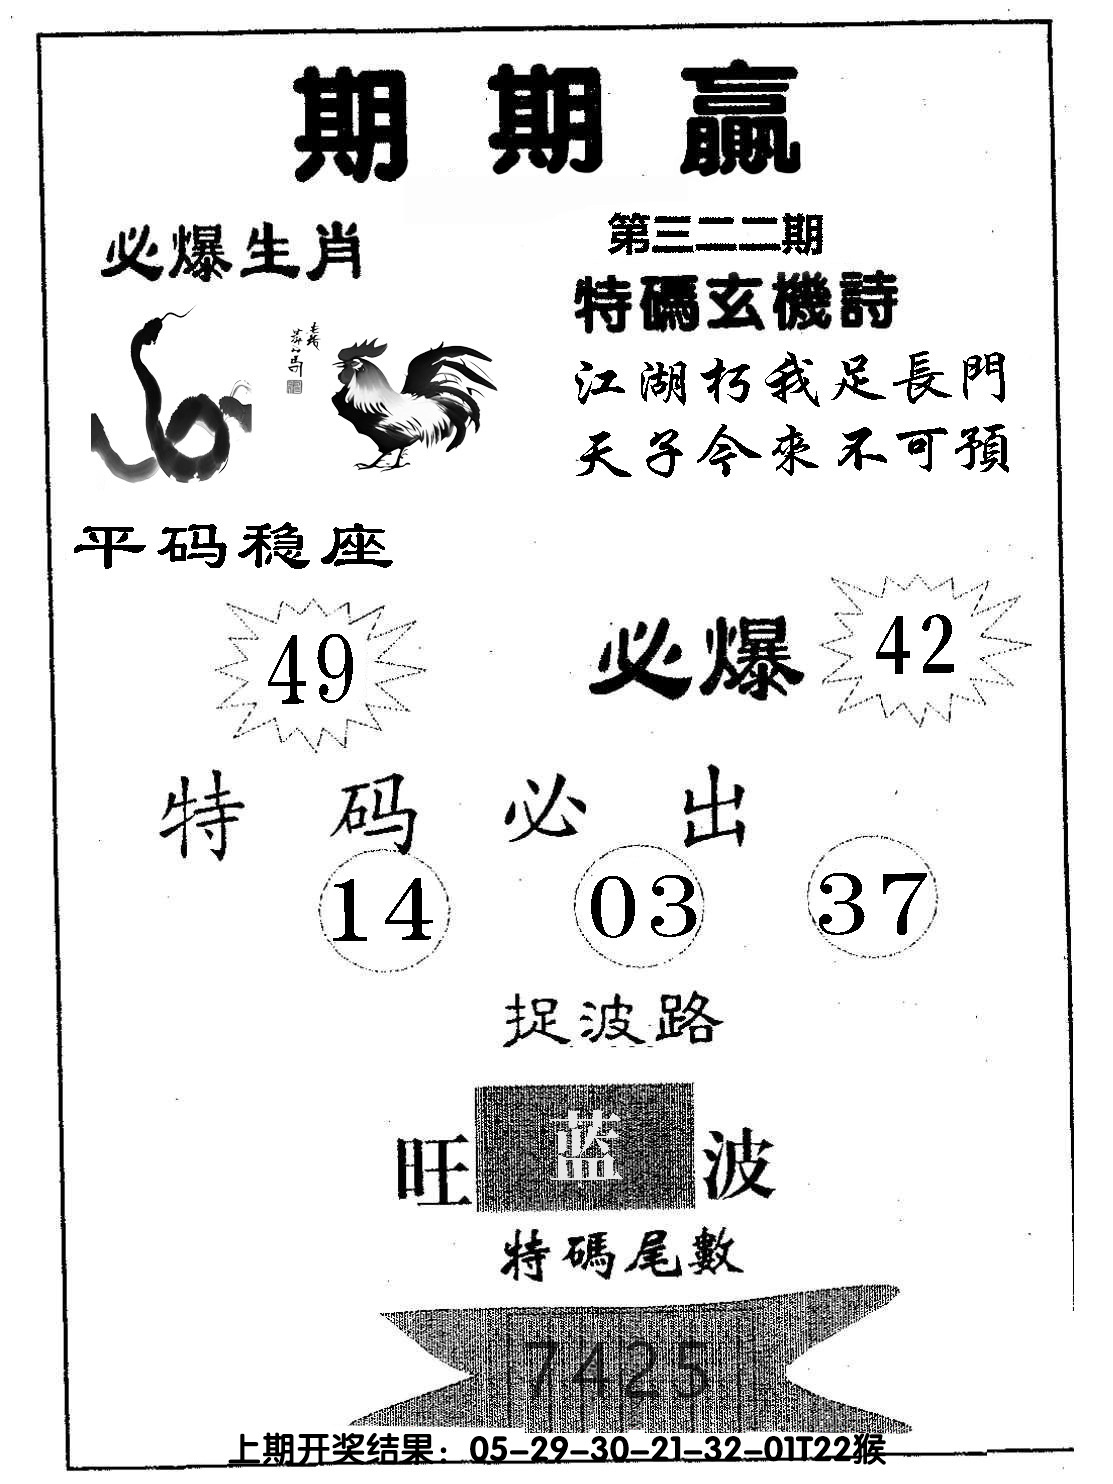 期期贏
必爆生肖
第三二二期
特碼玄機詩
江湖朽我足長門
天子今來不可預
平码稳座
49
必爆 42
特码必出
14 03 37
捉波路
旺 蓝 波
特碼尾數
7425
上期开奖结果：05-29-30-21-32-01T22猴